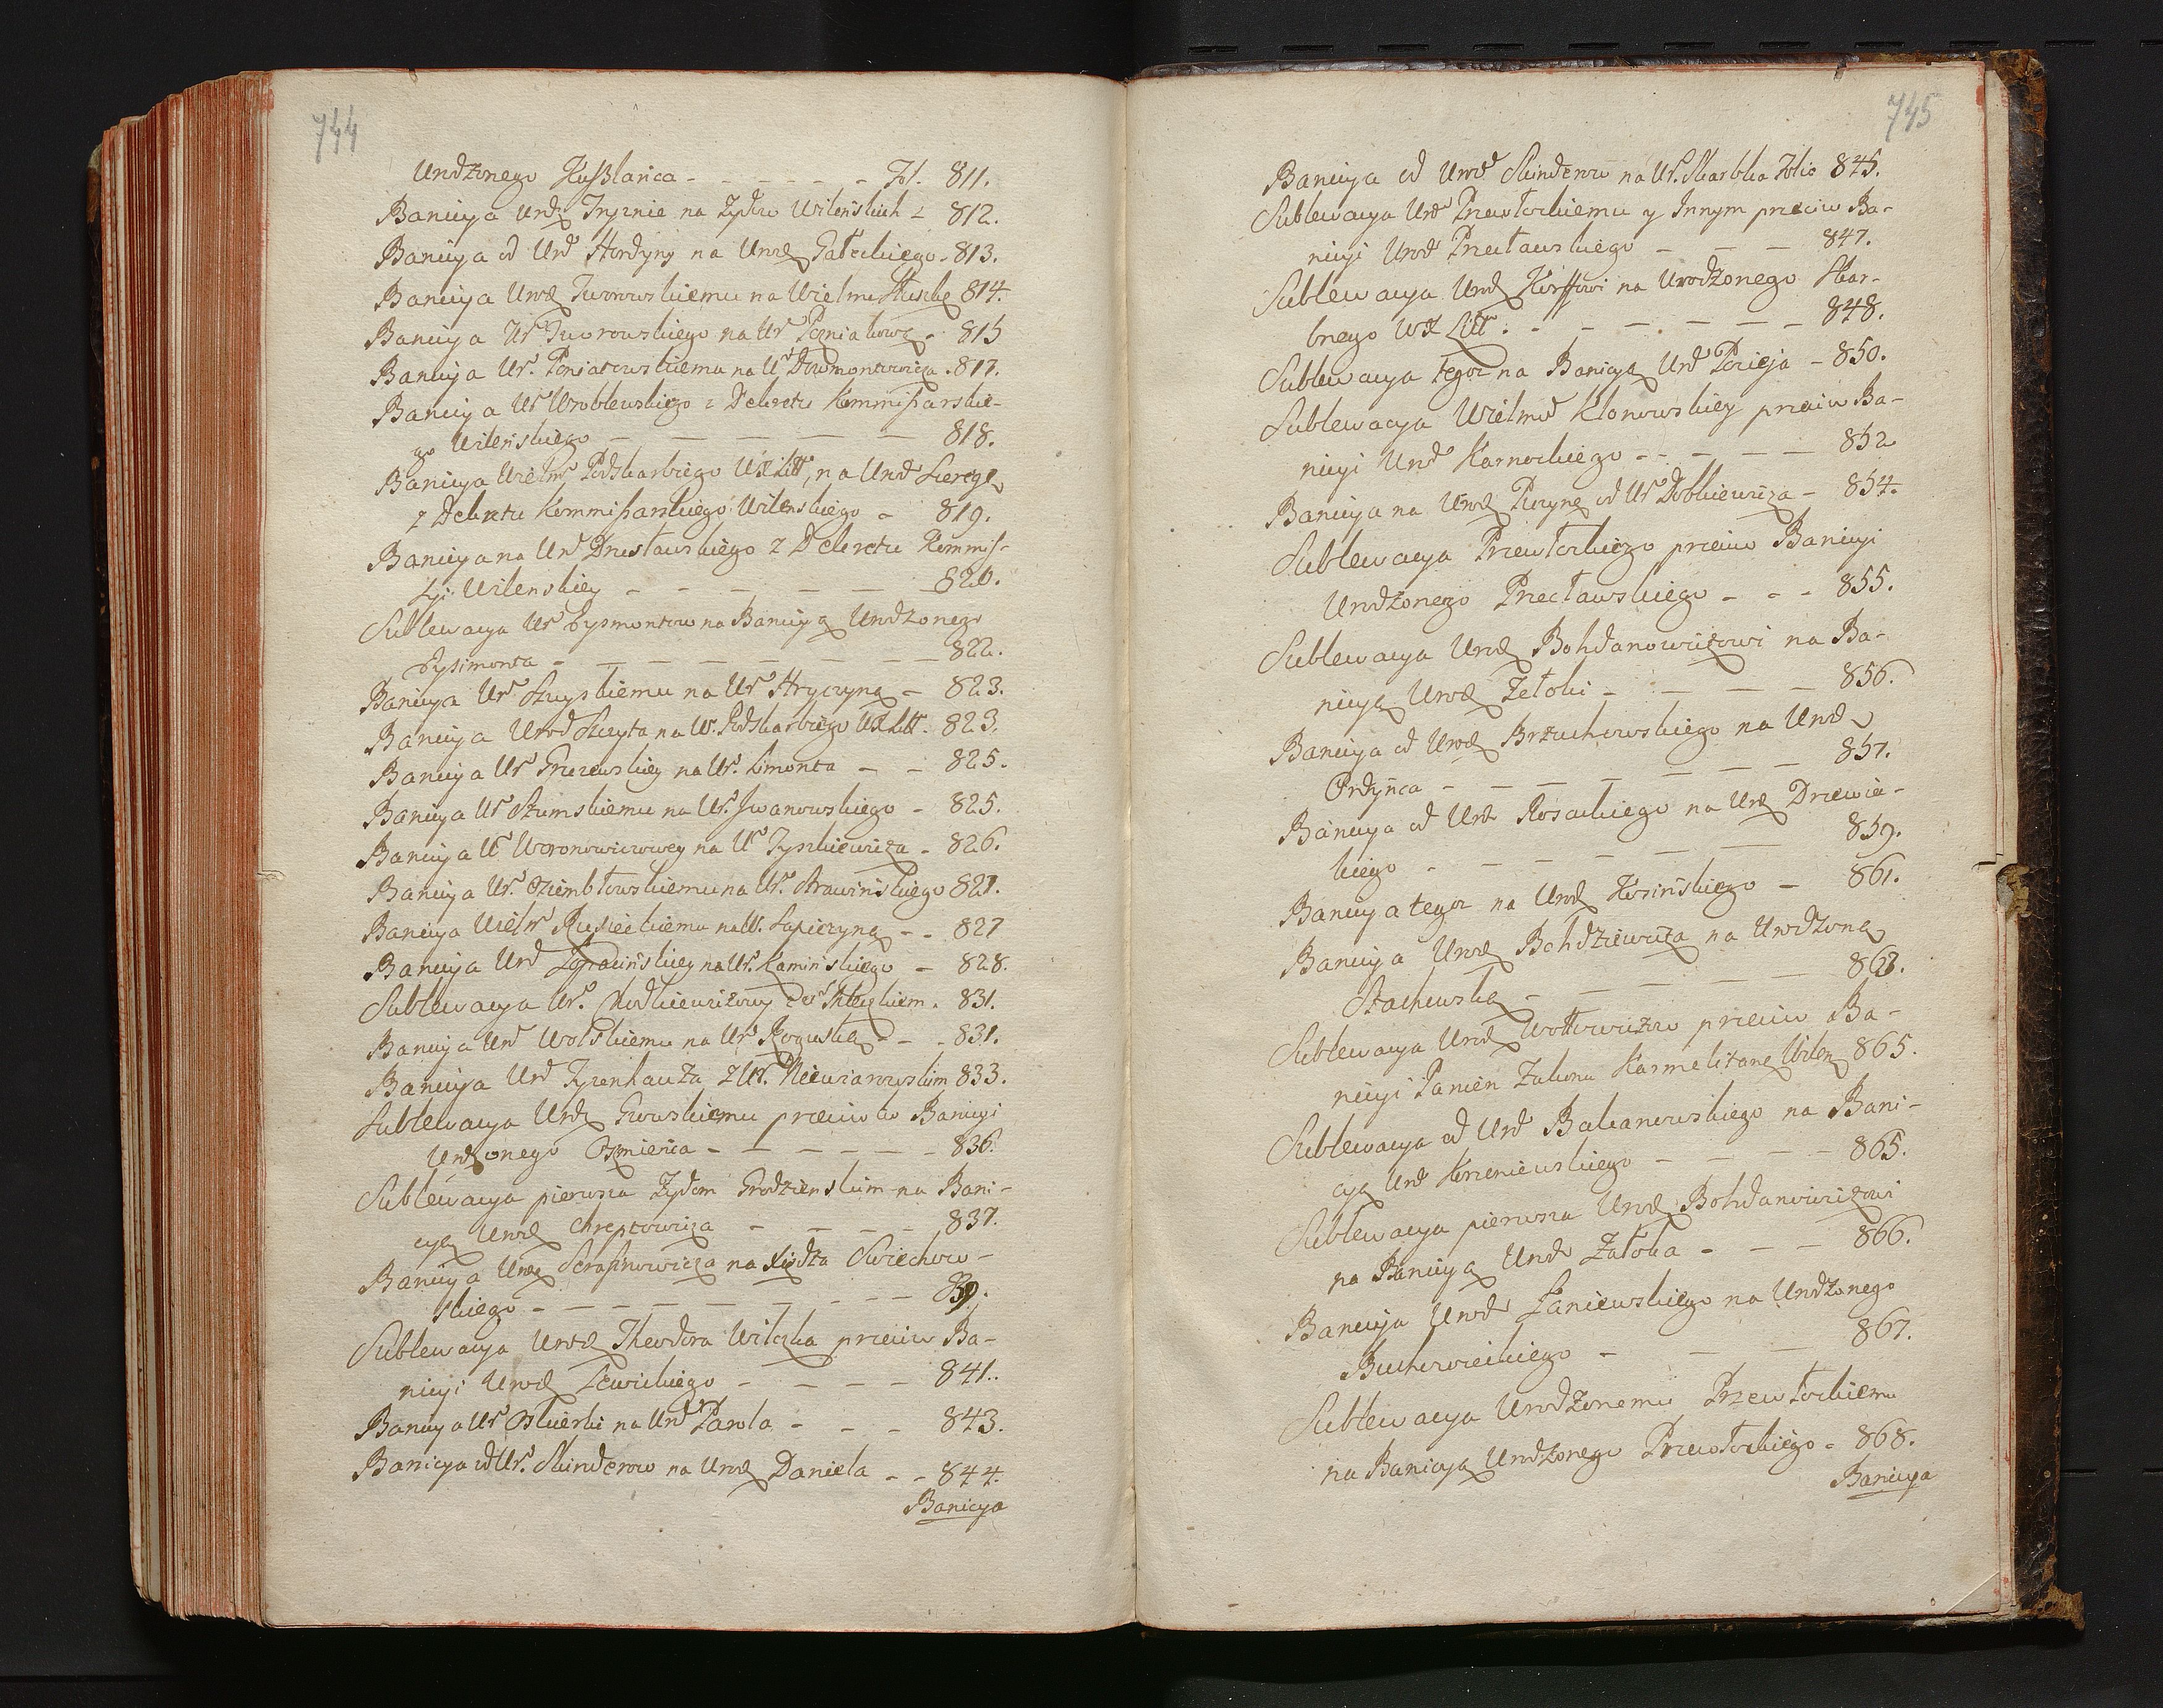 744
Urodzonego Kuszlańca - - - - - - fol. 811.
Banicya Urodz Tryznie na Żydow Wilenskich - 812.
Banicya od Urd Hordyny na Urodz Gałeckiego - 813.
Banicya Urodz Tworowskiemu na Wielm 814.
Banicya Ur Tworowskiego na Ur Poniatowę - 815
Banicya Ur. Poniatowskiemu na U Dowmontowicza . 817.
Banicya Ur Wroblewskiego z Dekretu Kommissarskie-
go Wileńskiego - - - - - 818.
Banicya Wielm Podskarbiego WXLitt, na Urod
z Dekretu Kommissarskiego Wilenskiego - 819.
Banicya na Ur Drustawskiego z Dekretu Kommis-
syi Wilenskiey - - - - - - 820.
Sublewacya Ur Eysmontow na Banicyą Urodzonego
Eysimonta - - - - - - - 822.
Banicya Ur Szuyskiemu na Ur Hryczynę - 823.
Banicya Urod Szczyta na W. Podskarbiego WXLitt. 823.
Banicya Ur Gruzewskiey na Ur. Limonta - - 825.
Banicya Ur Szumskiemu na Ur. Jwanowskiego - 825.
Banicya U Woronowiczowey na U Tyszkiewicza - 826.
Banicya Ur. Oziembłowskiemu na Ur. Strawinskiego 827.
Banicya Wielm Rusieckiemu na W. Sapieżynę - - 827
Banicya Urd na Ur. Kamińskiego - 828.
Sublewacya Ur. Chodkiewiczowey 831.
Banicya Urd Wolskiemu na Ur Roguskę - - - 831.
Banicya Urd Tyzenhauza z Ur. Niewiarowskim 833.
Sublewacya Urdz Gwowskiemu przeciwko Banicyi
Urdzonego Ozmieńca - - - - - - 836.
Sublewacya pierwsza Żydom Grodzienskim na Bani-
cyą Urodz Chreptowicza - - - - - 837.
Banicya Urodz Serafinowicza na Xiędza Swiechow-
skiego - - - - - - - - - 839.
Sublewacya Urodz Theodora Wilczka przeciw Ba-
nicyi Urodz Lewickiego - - - - - 841..
Banicya Ur Oskierki na Urd Parola - - - 843.
Banicya od Ur. Skinderow na Urodz Daniela - - 844.
Banicya
745
Banicya od Urod Skinderow na Ur. Skarbka folio 845.
Sublewacya Urd Przewłockiemu y Innym przeciw Ba-
nicyi Urod Przecławskiego - - - 847.
Sublewacya Urodz Korffowi na Urodzonego Skar-
bnego WX Litt. - - - - - - - 848.
Sublewacya tegoz na Banicyą Urd Pocieja - 850.
Sublewacya Wielmo Klonowskiey przeciw Ba-
nicyi Urod Karnockiego - - - - - 852
Banicya na Urodz Puzynę od Ur Dobkiewicza - 854.
Sublewacya Przewłockiego przeciw Banicyi
Urodzonego Przecławskiego - - - 855.
Sublewacya Urodz Bohdanowiczowi na Ba-
nicyą Urodz Załoki - - - - - 856.
Banicya od Urodz Brzuchowskiego na Urodz
Ordyńca - - - - - - - - 857.
Banicya od Urdz Kosackiego na Urdz Drzewie-
kiego - - - - - - - 859.
Banicya tegoz na Urodz Kosińskiego - 861.
Banicya Urodz Bohdziewicza na Urodzoną
Stachowską - - - - - - 863.
Sublewacya Urodz Wołłowiczow przeciw Ba-
nicyi Panien Zakonu Karmelitanę Wilen 865.
Sublewacya od Urd Bakanowskiego na Bani-
cyą Urd Korzeniewskiego - - - - - 865.
Sublewacya pierwsza Urodz Bohdanowiczowi
na Banicyą Urod Załoka - - - 866.
Banicya Urod Zaniewskiego na Urodzonego
Buchowieckiego - - - 867.
Sublewacya Urodzonemu Przewłockiemu
na Banicyą Urodzonego Przewłockiego - 868.
Banicya